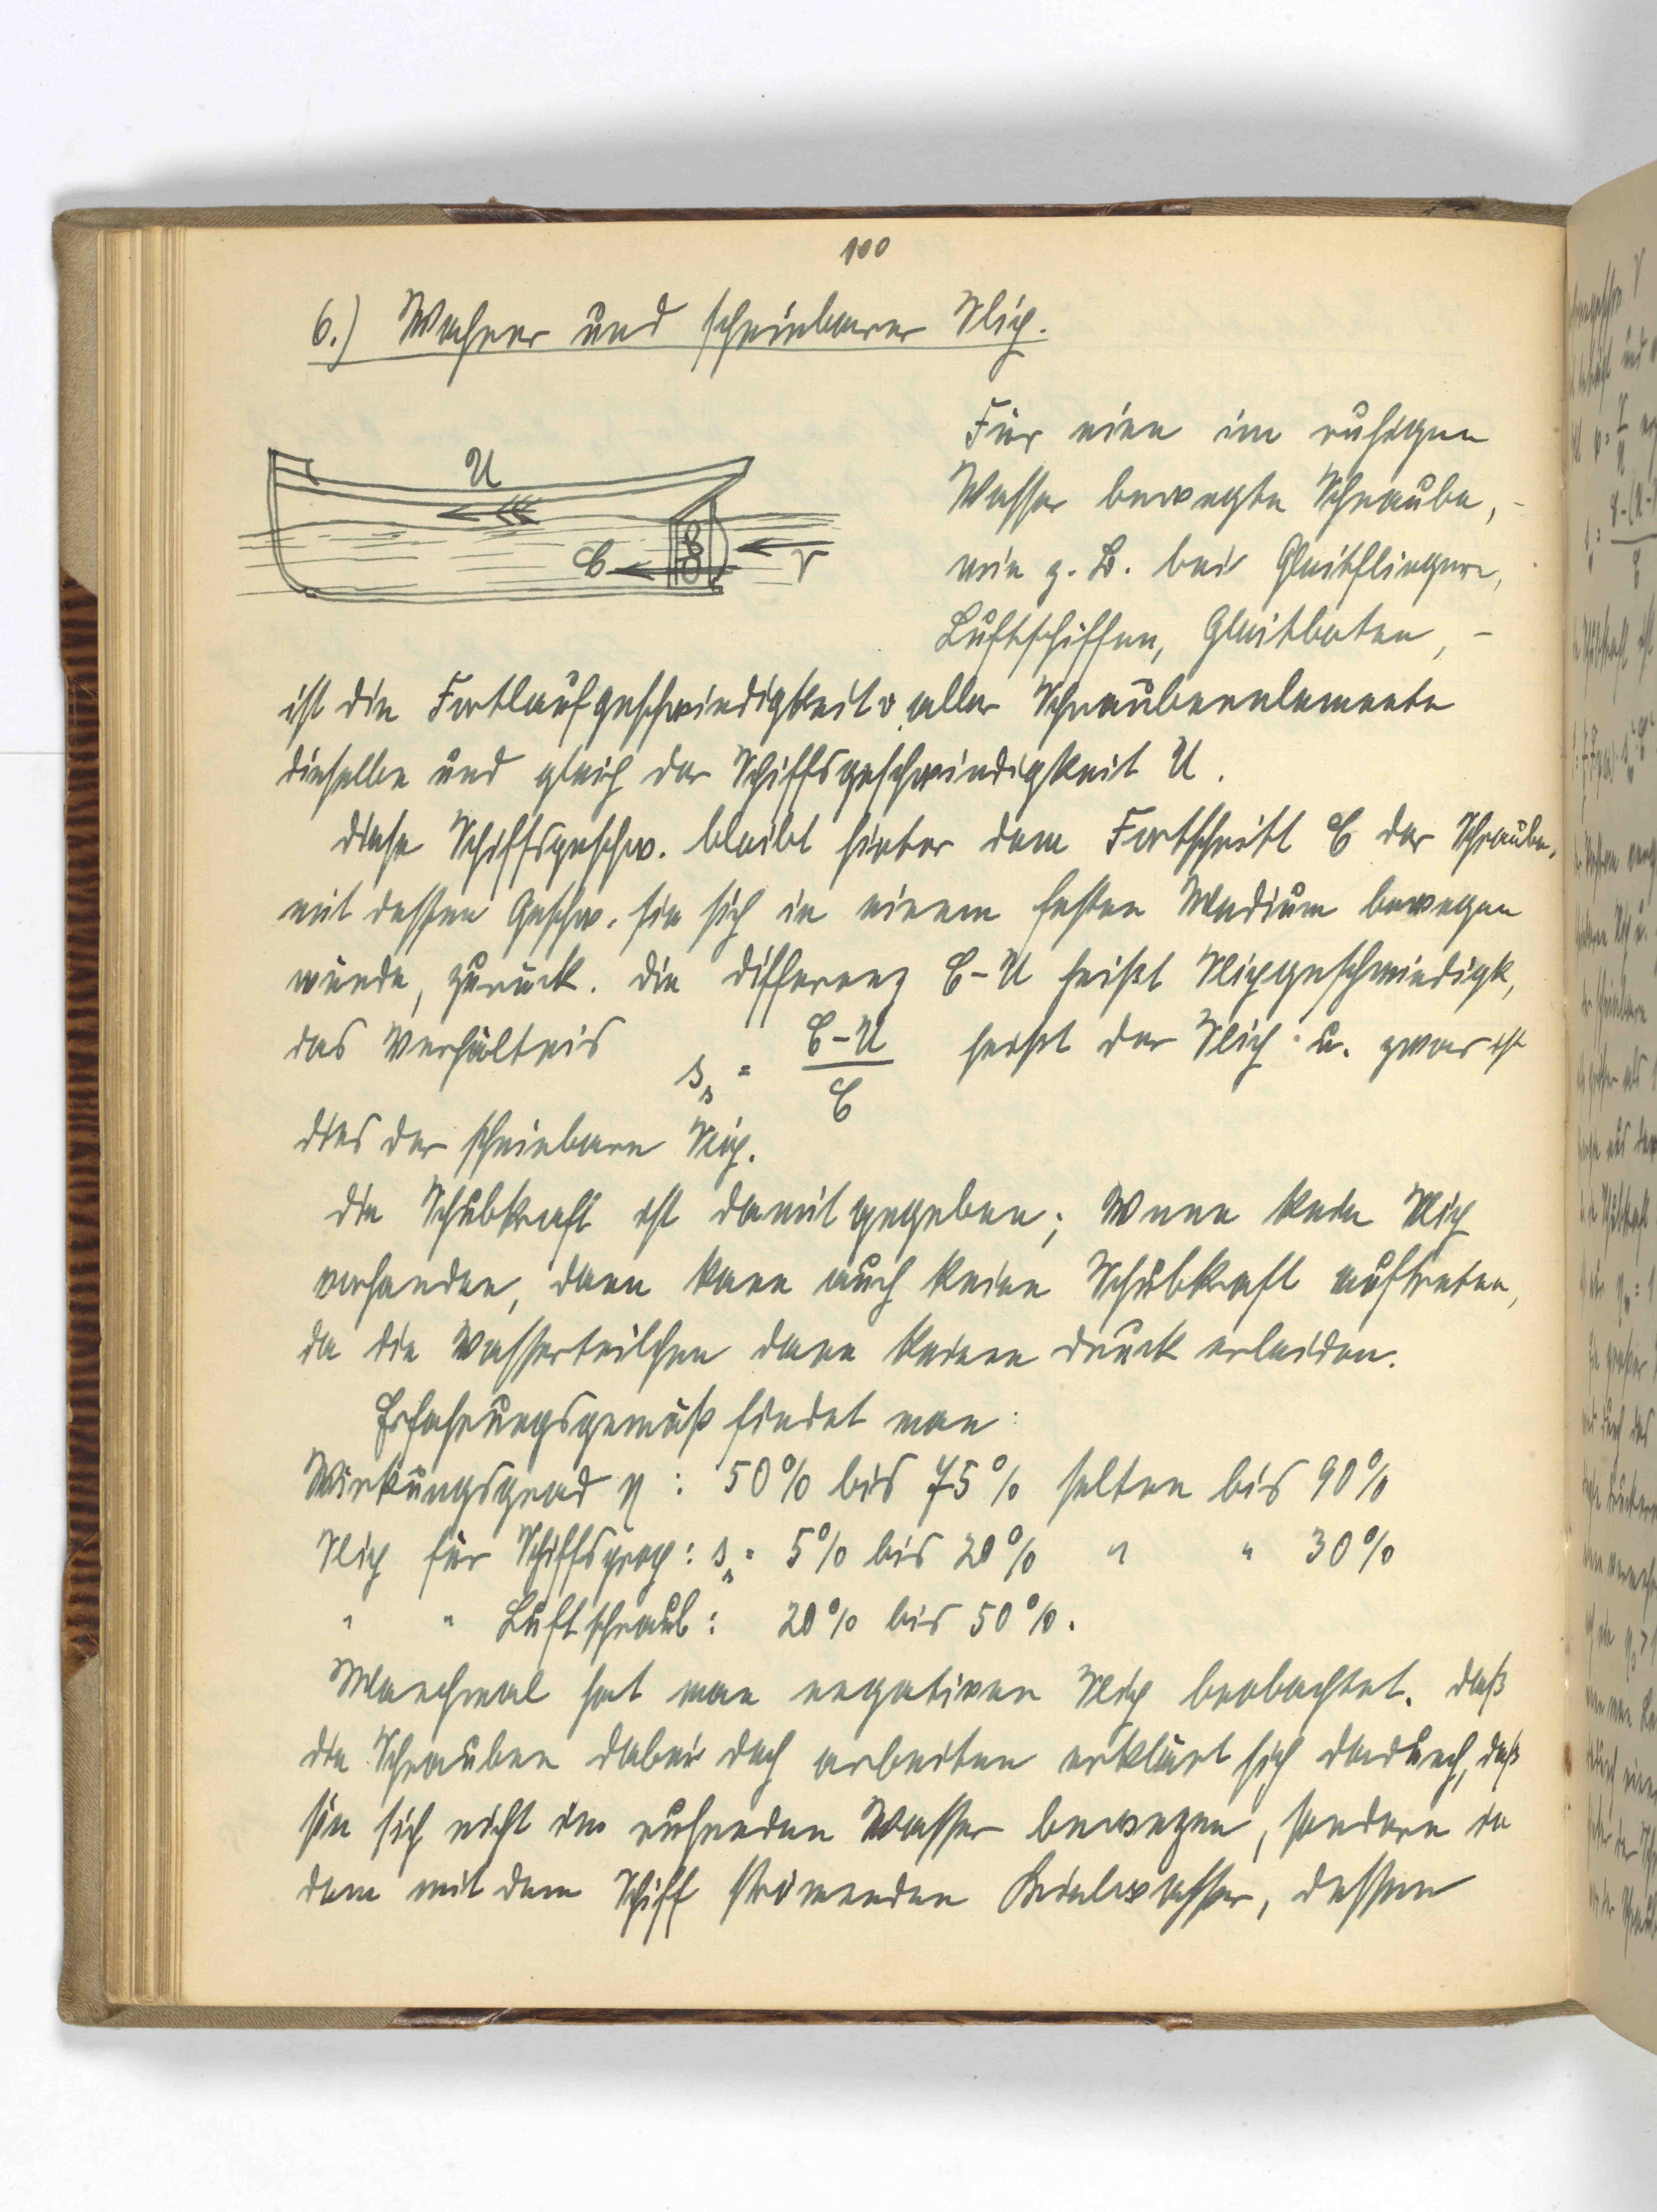 100
6.) Wahrer und scheinbarer Slip.
Für eine im ruhigen
Wasser bewegte Schraube, -
wie z. B. bei Gleitfliegern,
Luftschiffen, Gleitboten, -
U
C
v
ist die Fortlaufgeschwindigkeit v aller Schraubenelemente
dieselbe und gleich der Schiffsgeschwindigkeit U.
Diese Schiffsgeschw. bleibt hinter dem Fortschritt C der Schraube,
mit dessen Geschw. sie sich in einem festen Medium bewegen
würde, zurück. Die Differenz C-U heißt Slipgeschwindigk,
das Verhältnis s_s = (C-U)/C heißt der Slip u. zwar ist
dies der scheinbare Slip.
Die Schubkraft ist damit gegeben; Wenn kein Slip
vorhanden, dann kann auch keine Schubkraft auftreten,
da die Wasserteilchen dann keinen Druck erleiden.
Erfahrungsgemäß findet man:
Wirkungsgrad η : 50% bis 75% selten bis 90%
Slip für Schiffsprop: s_s = 5% bis 20% " " 30%
" " Luftschraub: 20% bis 50%.
Manchmal hat man negativen Slip beobachtet. Daß
die Schrauben dabei doch arbeiten erklärt sich dadurch, daß
sie sich nicht im ruhenden Wasser bewegen, sondern in
dem mit dem Schiff strömenden Kielwasser, dessen